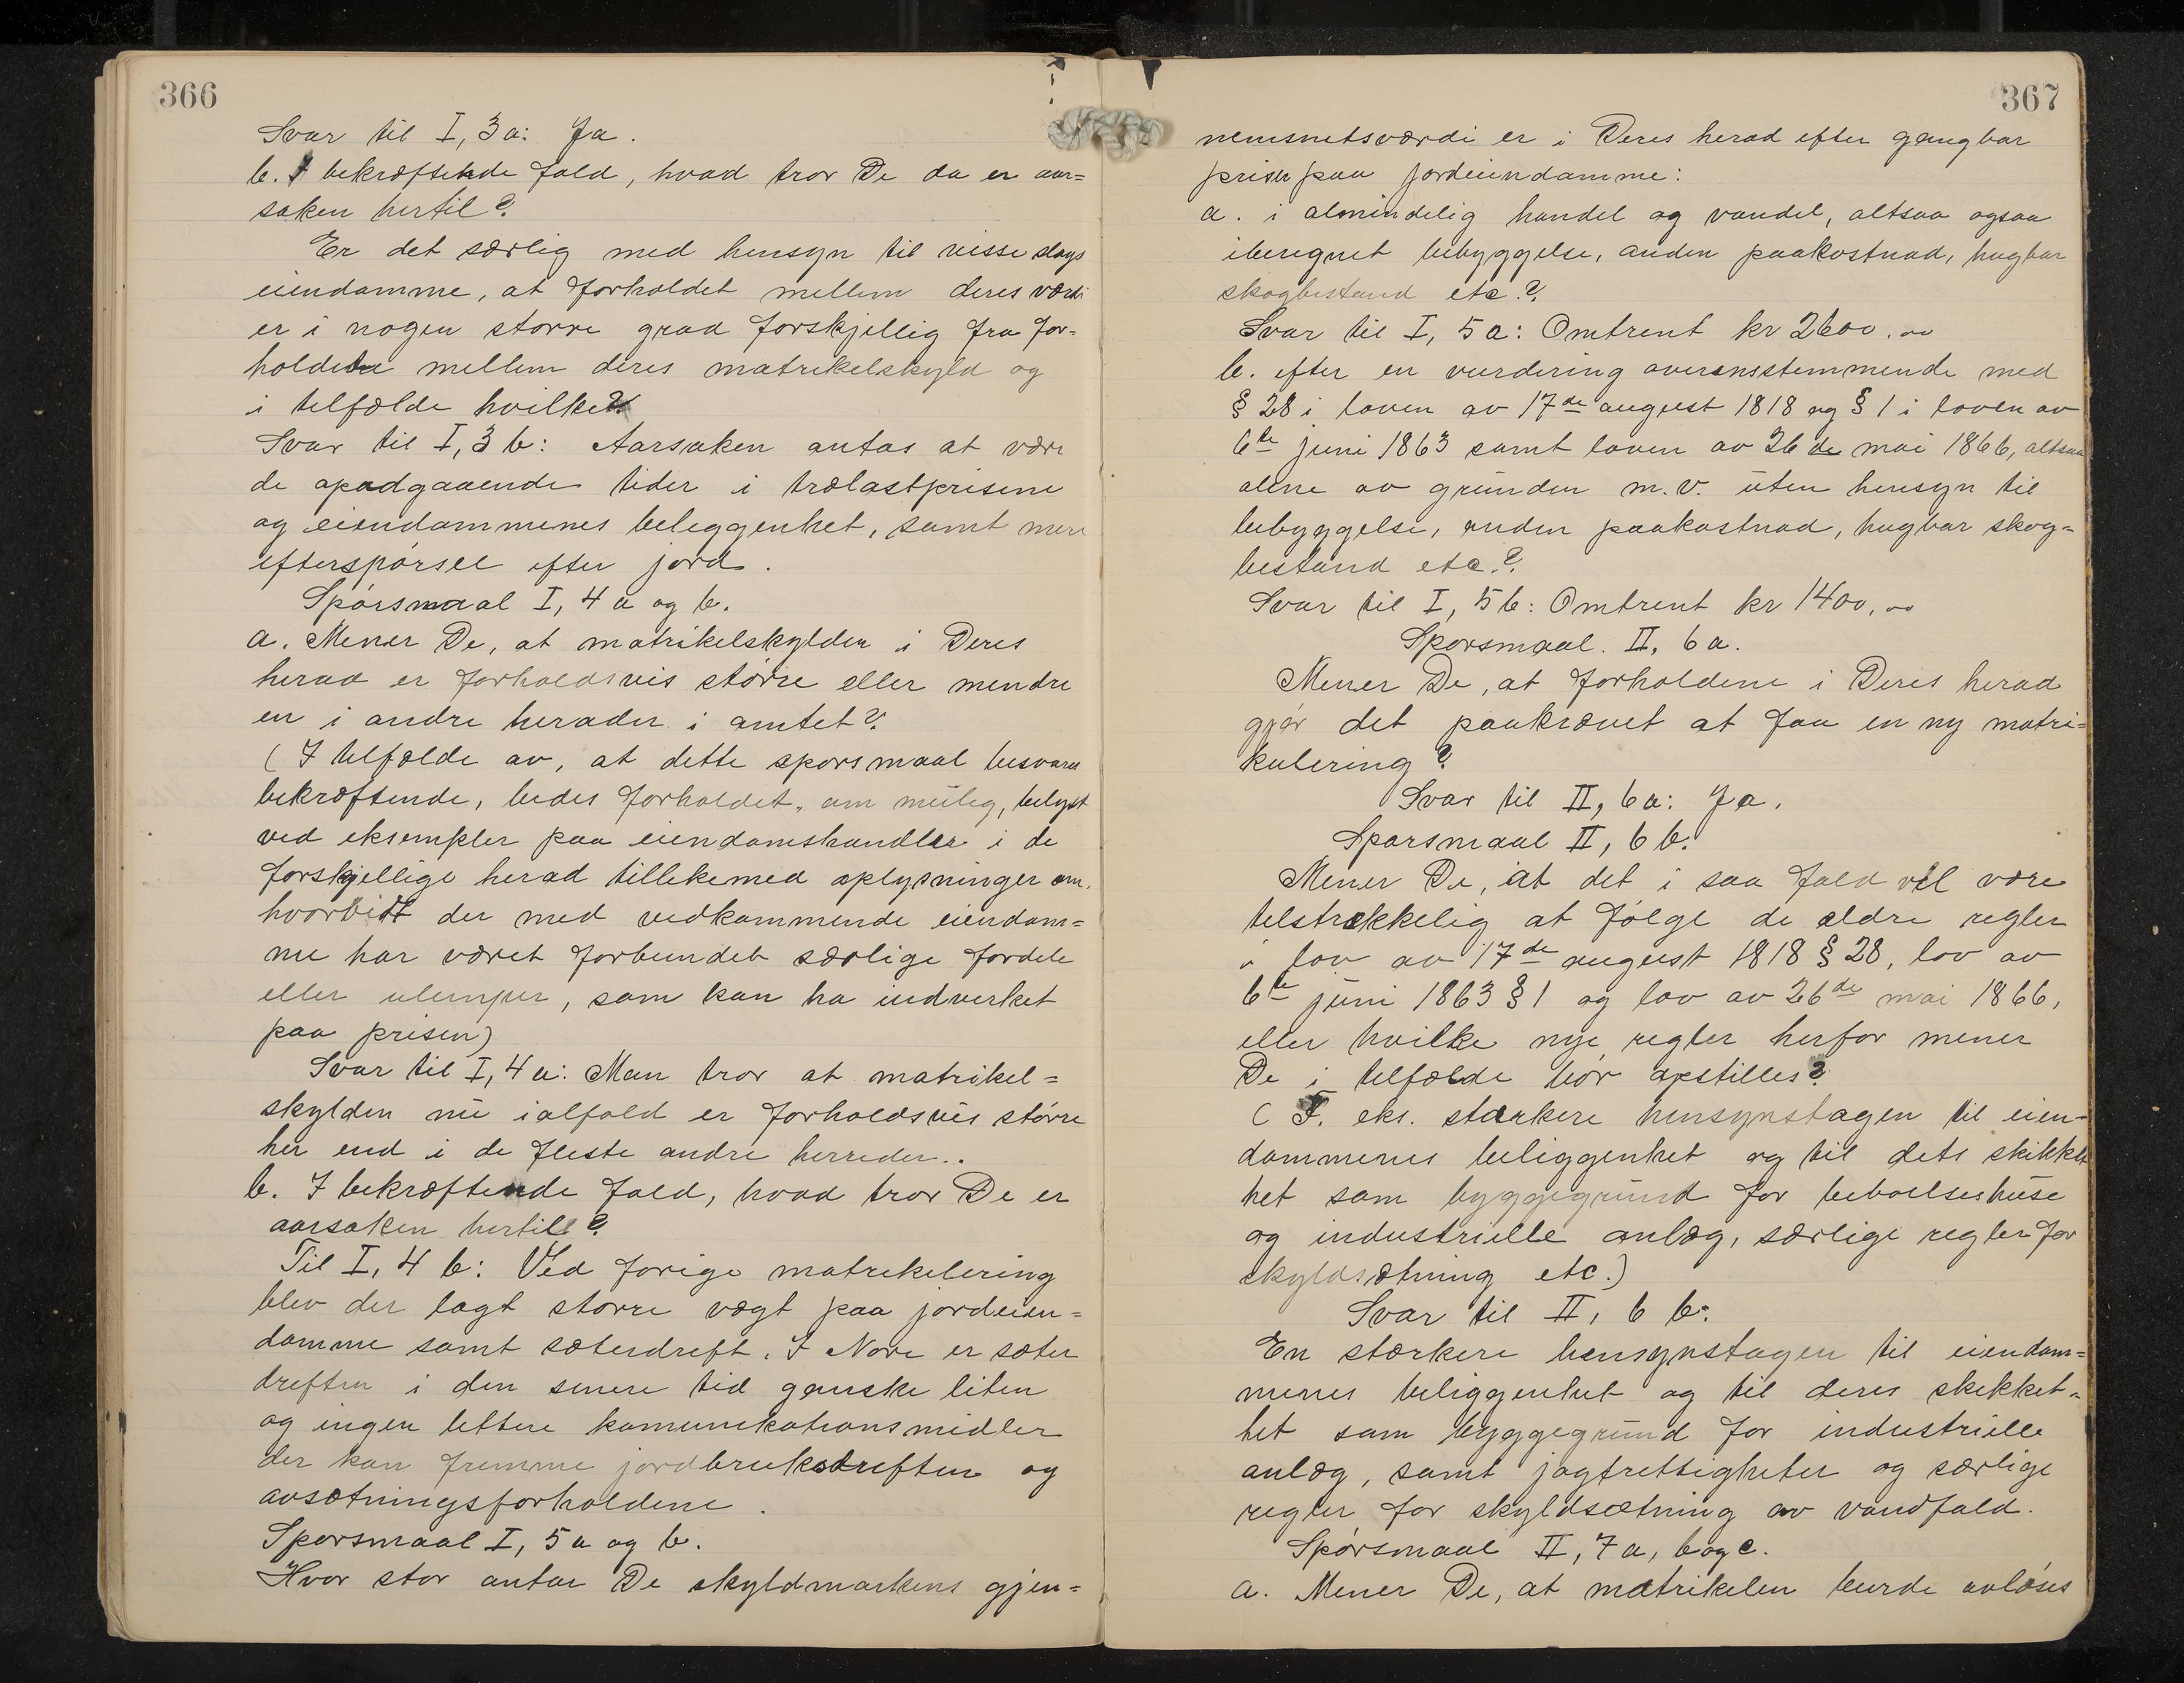 366
Svar til I, 3a: Ja.
b. I bekræftende fald, hvad tror De da er aar=
saken hertil?
Er det særlig med hensyn til visse slags
eiendomme, at forholdet mellem deres værdi
er i nogen større grad forskjellig fra for=
holdene mellem deres matrikelskyld og
i tilfælde hvilke?
Svar til I, 3 b: Aarsaken antas at være
de opadgaaende tider i trælastprisene
og eiendommenes beleggenhet, samt mere
efterspørsel efter jord.
Spørsmaal I, 4 a og b.
a. Mener De, at matrikelskylden i Deres
herad er forholdsvis større eller mindre
en i andre herader i amtet?
(I tilfælde av, at dette spørsmaal besvares
bekræftende, bedes forholdet, om mulig, belyst
ved eksempler paa eiendomshandler i de
forskjellige herad tillikemed oplysninger om,
hvorvidt der med vedkommende eiendom=
me har været forbundet særlige fordele
eller ulemper, som kan ha indvirket
paa prisen)
Svar til I, 4 a: Man tror at matrikel=
skylden nu ialfald er forholdsvis større
her end i de fleste andre herreder..
b. I bekræftende fald, hvad tror De er
aarsaken hertil?
Til I, 4 b: Ved forige matrikulering
blev der lagt større vægt paa jordeien=
domme samt sæterdrift. I Nore er sæter
driften i den senere tid ganske liten
og ingen lettere komunikationsmidler
der kan fremme jordbruksdriften og
avsætningsforholdene.
Spørsmaal I, 5 a og b.
Hvor stor antar De skyldmarkens gjen=
367
nemsnitsværdi er i Deres herad efter gangbar
priser paa jordeiendomme:
a. i almindelig handel og vandel, altsaa ogsaa
iberegnet bebyggelse, anden paakostnad, hugbar
skogbestand etc.?
Svar til I, 5 a: Omtrent kr 2600.00
b. efter en vurdering overensstemmende med
§ 28 i loven av 17de august 1818 og § 1 i loven av
6te juni 1863 samt loven av 26de mai 1866, altsaa
alene av grunden m.v. uten hensyn til
bebyggelse, anden paakostnad, hugbar skog=
bestand etc.?
Svar til I, 5 b: Omtrent kr 1400,00
Spørsmaal. II, 6 a.
Mener De, at forholdene i Deres herad
gjør det paakrævet at faa en ny matri=
kulering?
Svar til II, 6 a: Ja.
Spørsmaal II, 6 b.
Mener De, at det i saa fald vil være
tilstrækkelig at følge de ældre regler
i lov av 17de august 1818 § 28, lov av
6te juni 1863 § 1 og lov av 26de mai 1866,
eller hvilke nye regler herfor mener
De i tilfælde bør opstilles?
(F. eks. stærkere hensynstagen til eien=
dommenes beliggenhet og til dets skikket
het som byggegrund for beboelseshuse
og industrielle anlæg, særlige regler for
skyldsætning etc.)
Svar til II, 6 b:
En stærkere hensynstagen til eiendom=
menes beliggenhet og til deres skikket=
het som byggegrund for industrielle
anlæg, samt jagtrettigheter og særlige
regler for skyldsætning av vandfald.
Spørsmaal II, 7 a, b og c.
a. Mener De, at matrikelen burde avløses